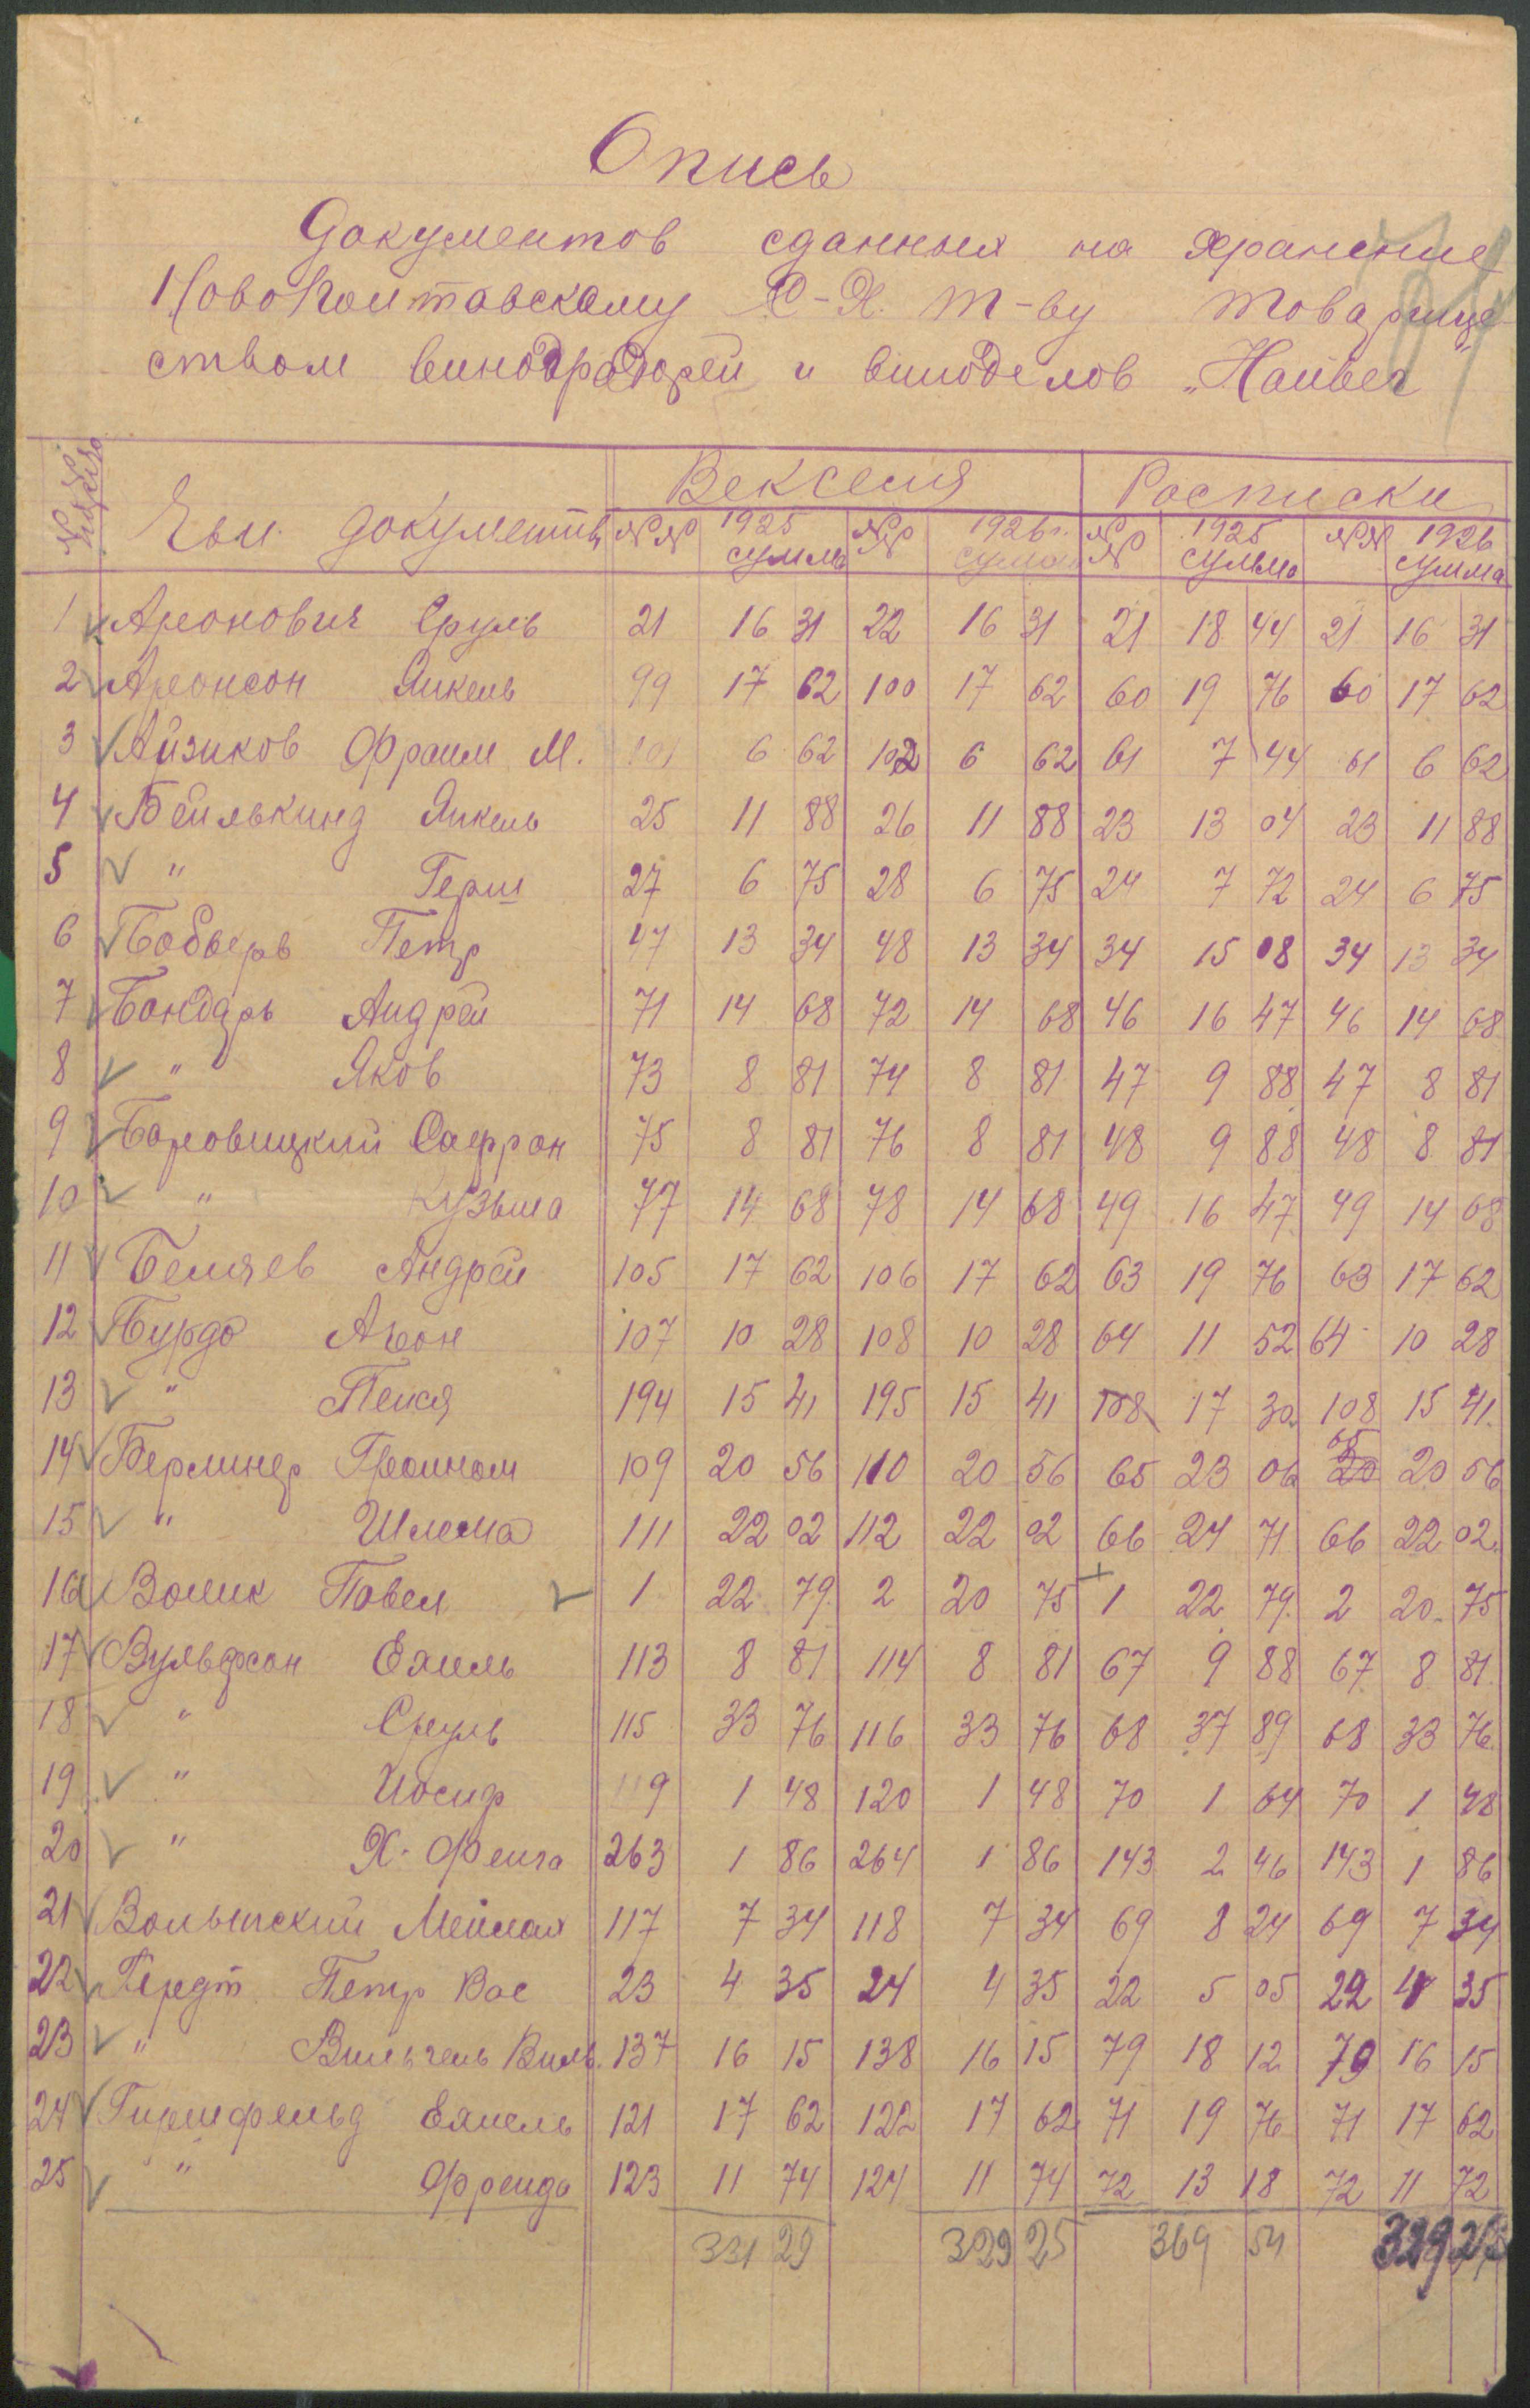 Опись
Документов сданных на хранение
Новополтавскому С-Х. т-ву товарище-
ством виноградарей и виноделов „Найвег"
Векселя Росписки
документов №№ 1925 сумма №№ 1926г. сумма №№ 1925 сумма №№ 1926 сумма
1 Аронович Сруль 21 16 31 22 16 31 21 18 44 21 16 31
2 Аронсон Янкель 99 17 62 100 17 62 60 19 76 60 17 62
3 Айзиков Фраим М. 101 6 62 102 6 62 61 7 44 61 6 62
4 Бейлькинд Янкель 25 11 88 26 11 88 23 13 04 23 11 88
5 " Герш 27 6 75 28 6 75 24 7 72 24 6 75
6 Петр 47 13 34 48 13 34 34 15 08 34 13 34
7 Бондарь Андрей 71 14 68 72 14 68 46 16 47 46 14 68
8 " Яков 73 8 81 74 8 81 47 9 88 47 8 81
9 Боровицкий Сафрон 75 8 81 76 8 81 48 9 88 48 8 81
10 " Кузьма 77 14 68 78 14 68 49 16 47 49 14 68
11 Беляев Андрей 105 17 62 106 17 62 63 19 76 63 17 62
12 Бурдо Арон 107 10 28 108 10 28 64 11 52 64 10 28
13 " 194 15 41 195 15 41 108 17 30 108 15 41
14 Берлинер 109 20 56 110 20 56 65 23 06 65 20 56
15 " Шлема 111 22 02 112 22 02 66 24 71 66 22 02
16 Волик Павел 1 22 79 2 20 75 1 22 79 2 20 75
17 Вульфсон Ехиель 113 8 81 114 8 81 67 9 88 67 8 81
18 " Сруль 115 33 76 116 33 76 68 37 89 68 33 76
19 " Иосиф 119 1 48 120 1 48 70 1 64 70 1 48
20 " Х. Фейга 263 1 86 264 1 86 143 2 46 143 1 86
21 Волынский 117 7 34 118 7 34 69 8 24 69 7 34
22 Петр Вас 23 4 35 24 4 35 22 5 05 22 4 35
23 " Вильгель Виль. 137 16 15 138 16 15 79 18 12 79 16 15
24 Гиршфельд Ехиель 121 17 62 122 17 62 71 19 76 71 17 62
25 " Фрейда 123 11 74 124 11 74 72 13 18 72 11 72
331 29 329 25 369 54 329 25